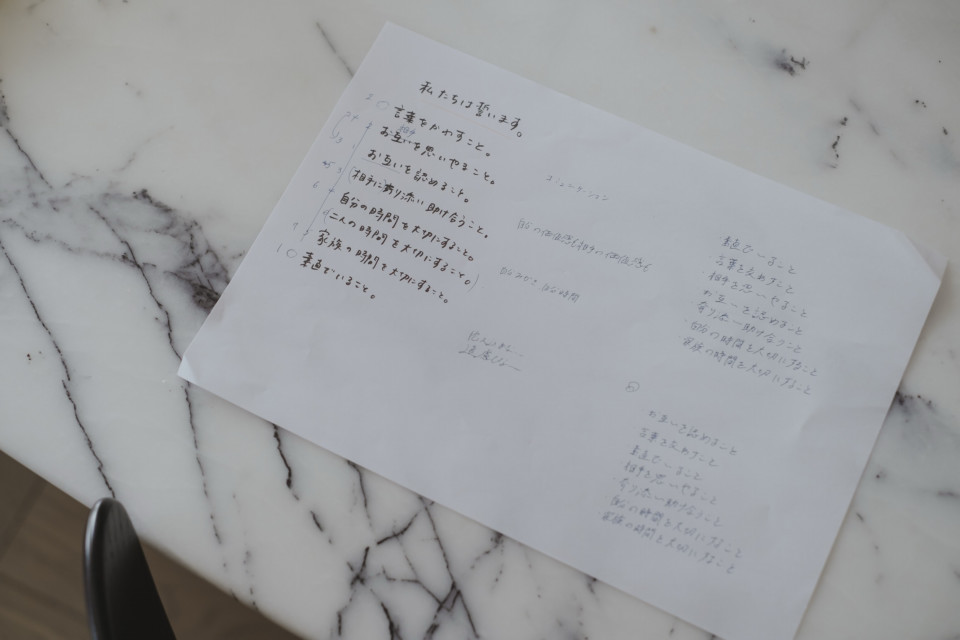 私たちは誓います。
2 ○ 言葉をかわすこと。
相手
お互いを思いやること。
3 お互いを認めること。
5 (相手に寄り添い助け合うこと。
6 自分の時間を大切にすること。
(二人の時間を大切にすること。)
7 家族の時間を大切にすること。
1 ○ 素直でいること。
自分の価値感も相手の価値感も
自分時間
素直でいること
言葉を交わすこと
相手を思いやること
お互いを認めること
寄り添い助け合うこと
自分の時間を大切にすること
家族の時間を大切にすること
お互いを認めること
言葉を交わすこと
素直でいること
相手を思いやること
寄り添い助け合うこと
自分の時間を大切にすること
家族の時間を大切にすること